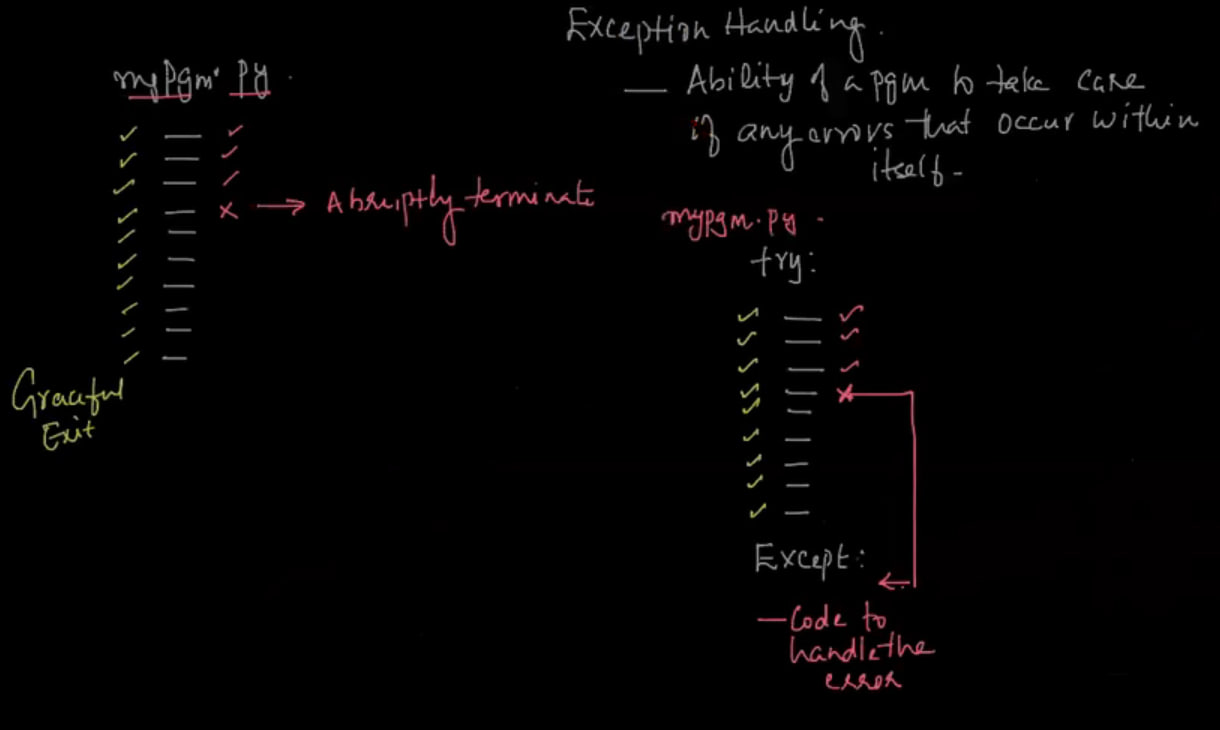 Exception Handling.
— Ability of a pgm to take care
if any errors that occur within
itself-
myPgm.py.
Abruptly terminate
Graceful
Exit
mypgm.py.
try:
Except:
— Code to
handle the
error